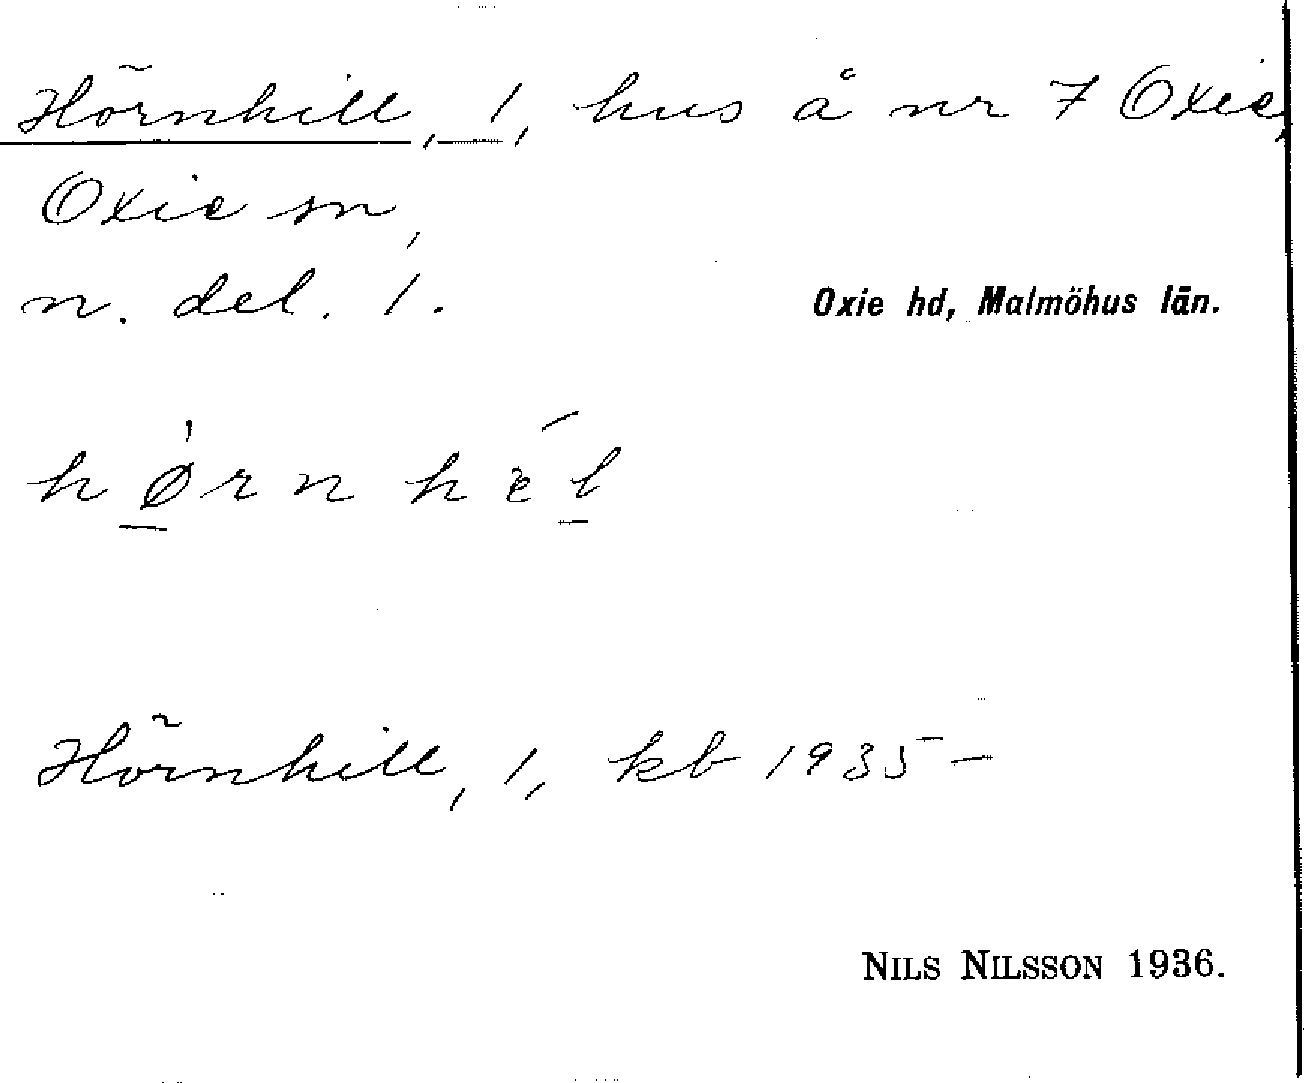 Hörnhill, 1, hus å nr 7 Oxie,
Oxie sn,
n. del. 1.
Oxie hd, Malmöhus län.
hø̱rnhéḻ
Hörnhill, 1, kb 1935–
NILS NILSSON 1936.